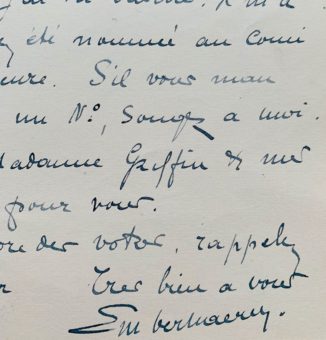 été nommé au Comi
eure. S'il vous man
un N°, Songez a moi.
Madame Griffin & mes
pour vous.
ore des votes, rappelez
Tres bien a vous
Em Verhaeren.